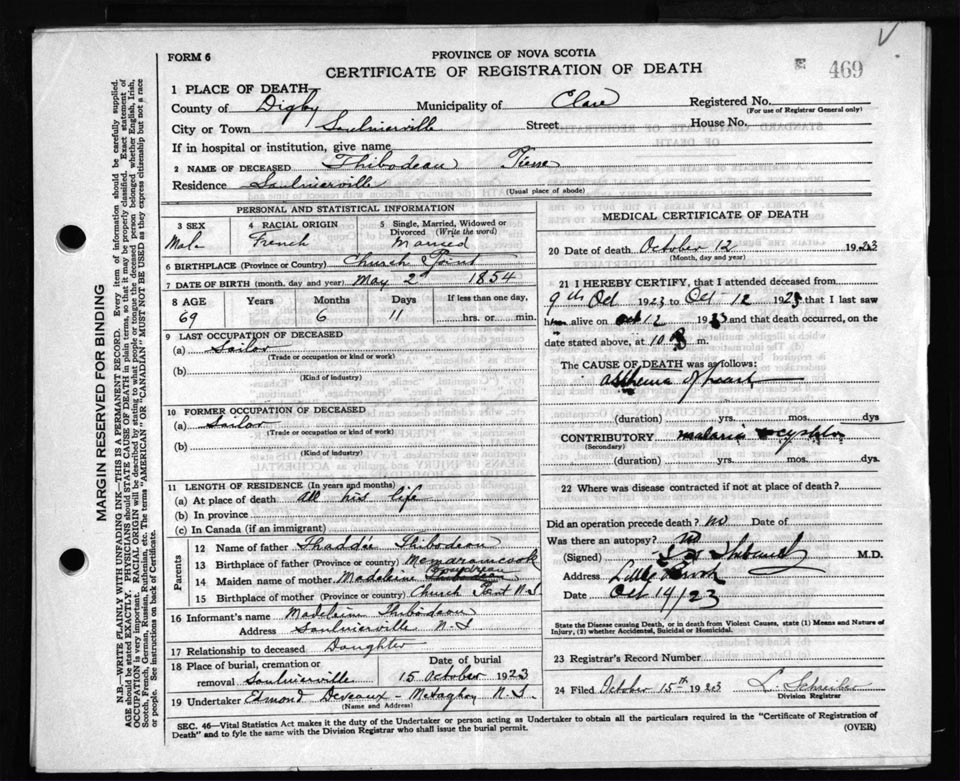 FORM 6
PROVINCE OF NOVA SCOTIA
CERTIFICATE OF REGISTRATION OF DEATH
469
1 PLACE OF DEATH
County of Digby Municipality of Clare Registered No.
(For use of Registrar General only)
City or Town Saulnierville Street House No.
If in hospital or institution, give name
2 NAME OF DECEASED Thibodeau Pierre
Residence Saulnierville
(Usual place of abode)
PERSONAL AND STATISTICAL INFORMATION
3 SEX 4 RACIAL ORIGIN 5 Single, Married, Widowed or Divorced (Write the word)
Male French Married
6 BIRTHPLACE (Province or Country) Church Point
7 DATE OF BIRTH (month, day and year) May 2 1854
8 AGE Years Months Days If less than one day,
69 6 11 hrs. or min.
9 LAST OCCUPATION OF DECEASED
(a) Sailor
(Trade or occupation or kind or work)
(b)
(Kind of industry)
10 FORMER OCCUPATION OF DECEASED
(a) Sailor
(Trade or occupation or kind of work)
(b)
(Kind of industry)
11 LENGTH OF RESIDENCE (In years and months)
(a) At place of death all his life
(b) In province
(c) In Canada (if an immigrant)
Parents
12 Name of father Thaddée Thibodeau
13 Birthplace of father (Province or Country) Memramcook
14 Maiden name of mother Madeleine
15 Birthplace of mother (Province or country) Church Point N.S
16 Informant's name Madeleine Thibodeau
Address Saulnierville N.S
17 Relationship to deceased Daughter
18 Place of burial, cremation or removal Saulnierville
Date of burial
15 October 1923
19 Undertaker Edmond Deveaux - Meteghan N.S.
(Name and Address)
MEDICAL CERTIFICATE OF DEATH
20 Date of death October 12 1923
(Month, day and year)
21 I HEREBY CERTIFY, that I attended deceased from
9th Oct 1923 to Oct 12 1923 that I last saw
alive on Oct 12 1923 and that death occurred, on the
date stated above, at 10 m.
The CAUSE OF DEATH was as follows:
of heart
(duration) yrs. mos. dys
CONTRIBUTORY malaria
(Secondary)
(duration) yrs. mos. dys.
22 Where was disease contracted if not at place of death?
Did an operation precede death? no Date of
Was there an autopsy? no
(Signed) M.D.
Address Little Brook
Date Oct 14/23
State the Disease causing Death, or in death from Violent Causes, state (1) Means and Nature of Injury, (2) whether Accidental, Suicidal or Homicidal.
23 Registrar's Record Number
24 Filed October 15th 1923 L. Schreiber
Division Registrar
SEC. 46—Vital Statistics Act makes it the duty of the Undertaker or person acting as Undertaker to obtain all the particulars required in the "Certificate of Registration of
Death" and to fyle the same with the Division Registrar who shall issue the burial permit. (OVER)
MARGIN RESERVED FOR BINDING
N.B.—WRITE PLAINLY WITH UNFADING INK—THIS IS A PERMANENT RECORD. Every item of information should be carefully supplied.
AGE should be stated EXACTLY. PHYSICIANS should STATE CAUSE OF DEATH in plain terms, so that it may be properly classified. Exact statement of
OCCUPATION is very important. RACIAL ORIGIN will be described by stating to what people or tongue the deceased person belonged whether English, Irish,
Scotch, French, German, Russian, Ruthenian, etc. The terms "AMERICAN" OR "CANADIAN" MUST NOT BE USED as they express citizenship but not a race
or people. See instructions on back of Certificate.